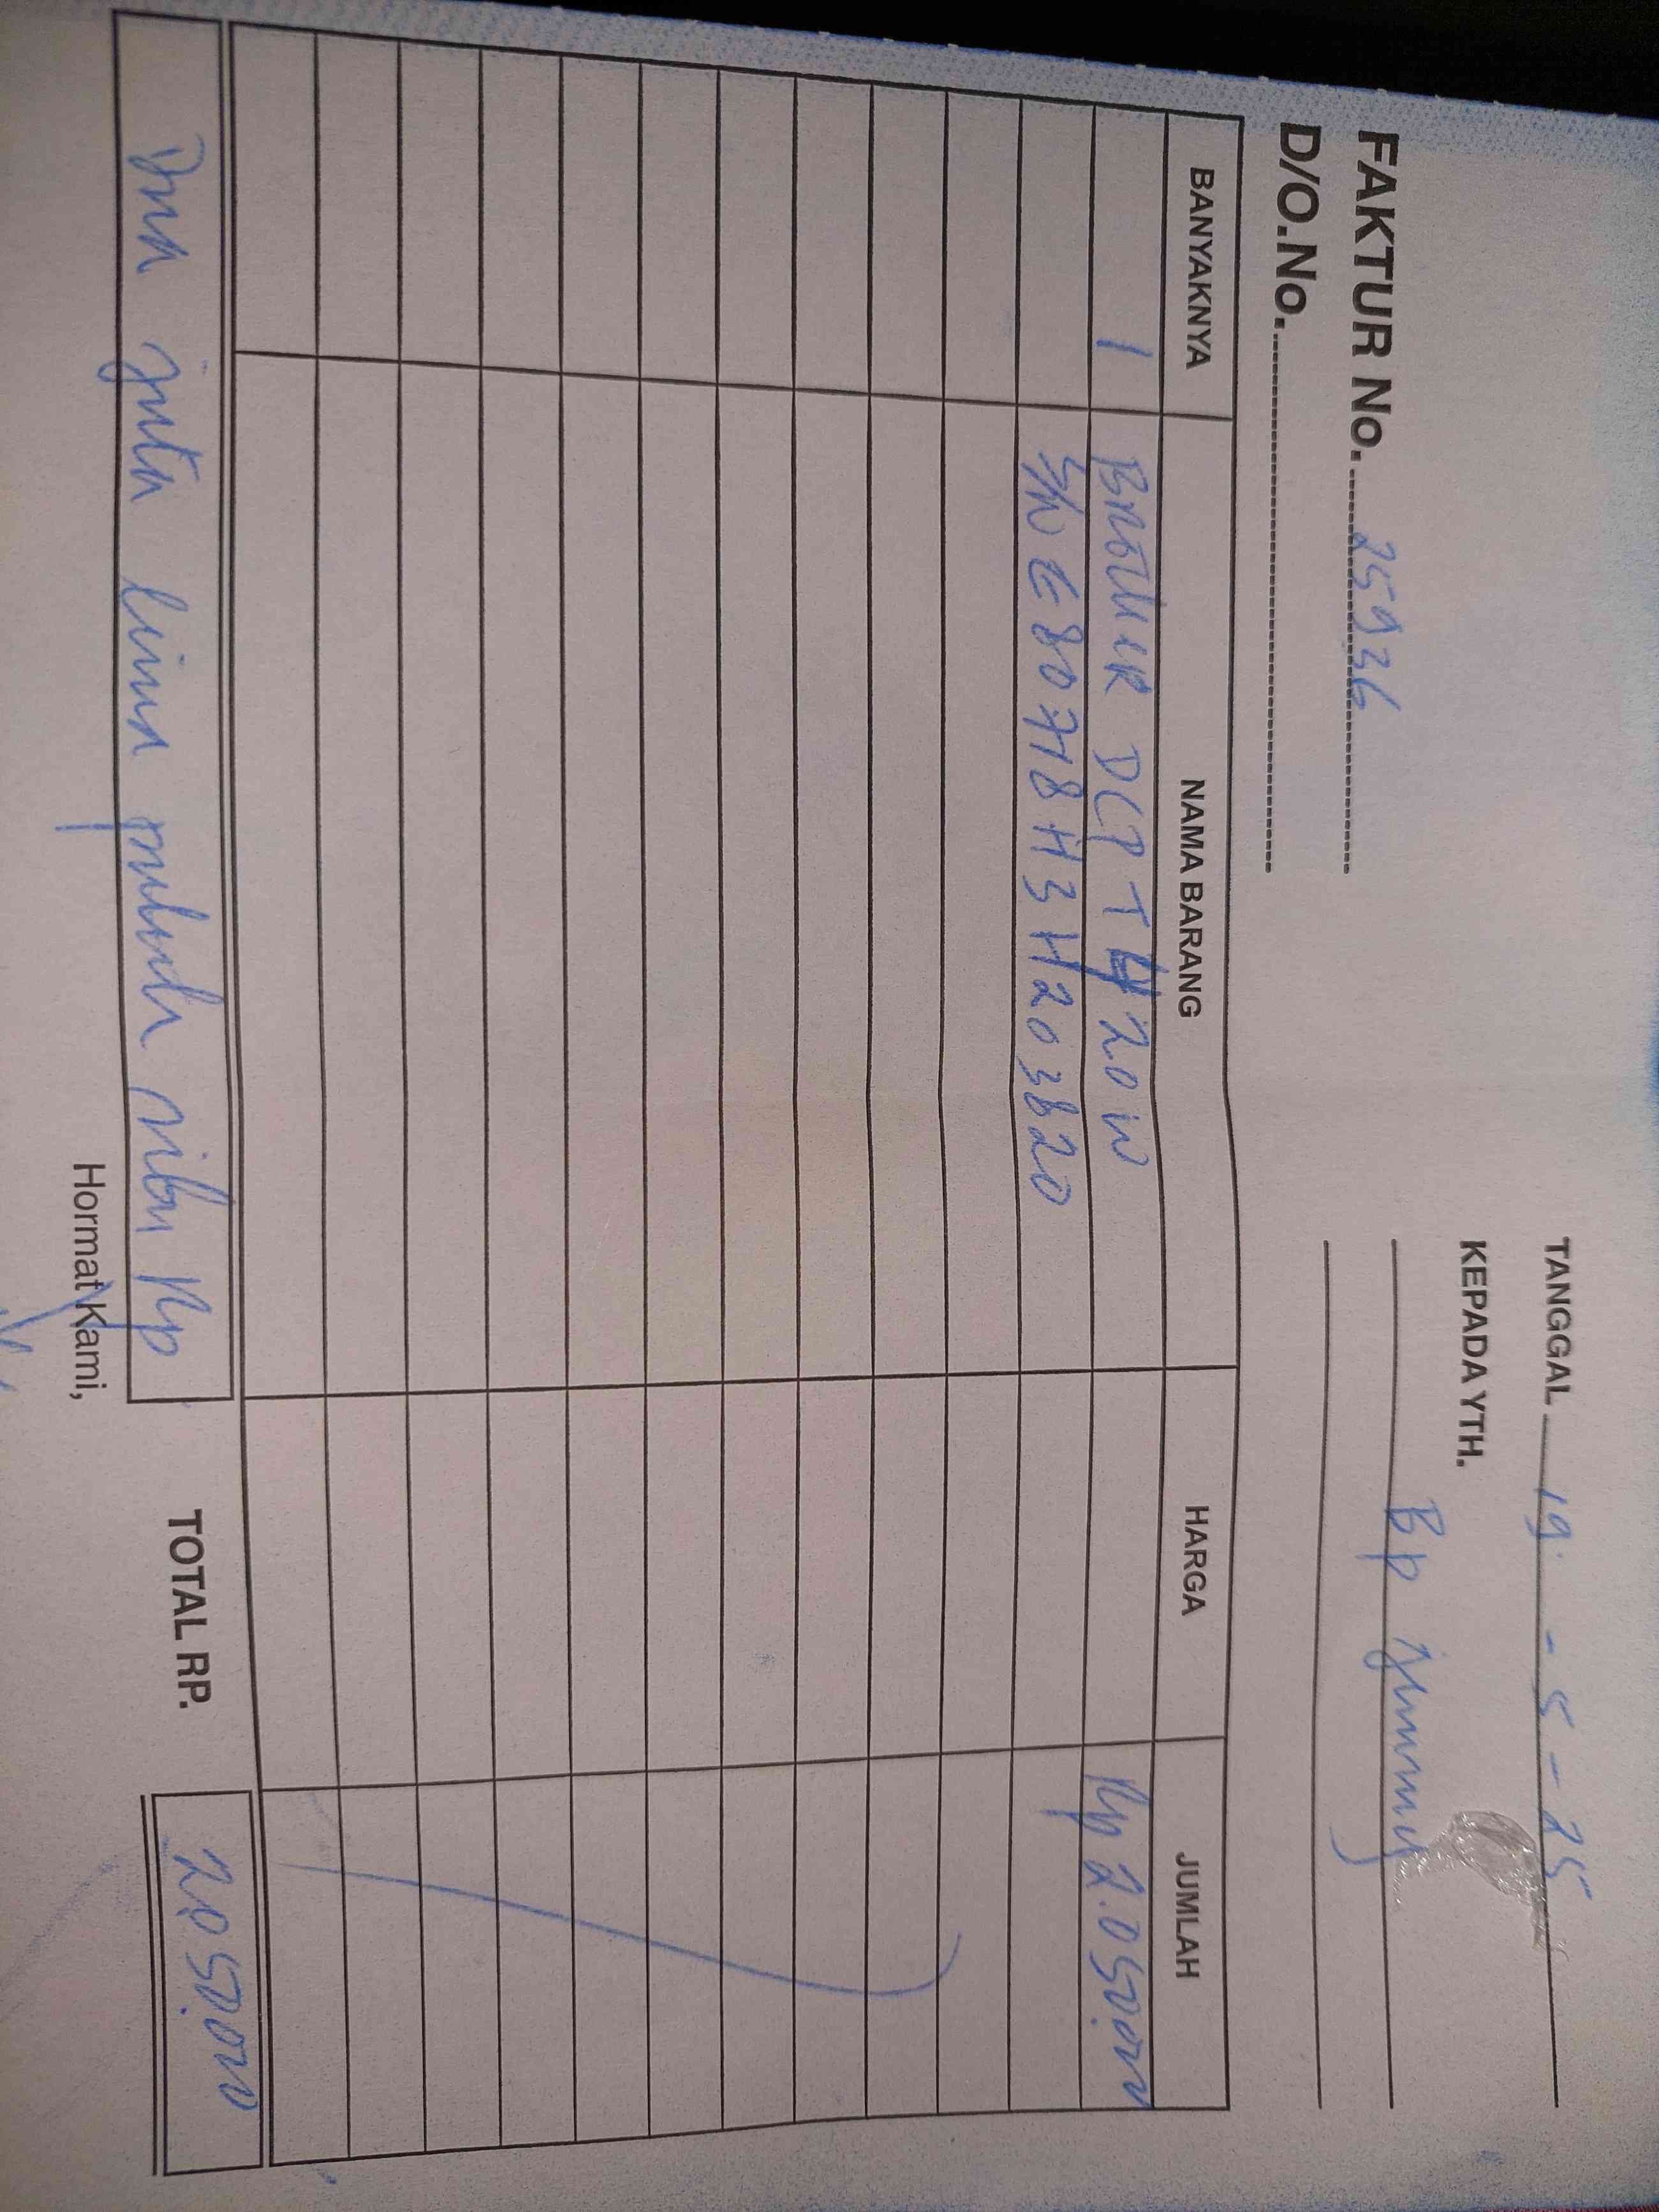 TANGGAL 19 - 5 - 25
KEPADA YTH.
Bp Jimmy
FAKTUR No. 25936
D/O.No.
BANYAKNYA NAMA BARANG HARGA JUMLAH
1 BROTHER DCP T420W Rp 2.050.000
S/N E80718H3H203620
Dua juta lima puluh ribu Rp TOTAL RP. 2.050.000
Hormat Kami,